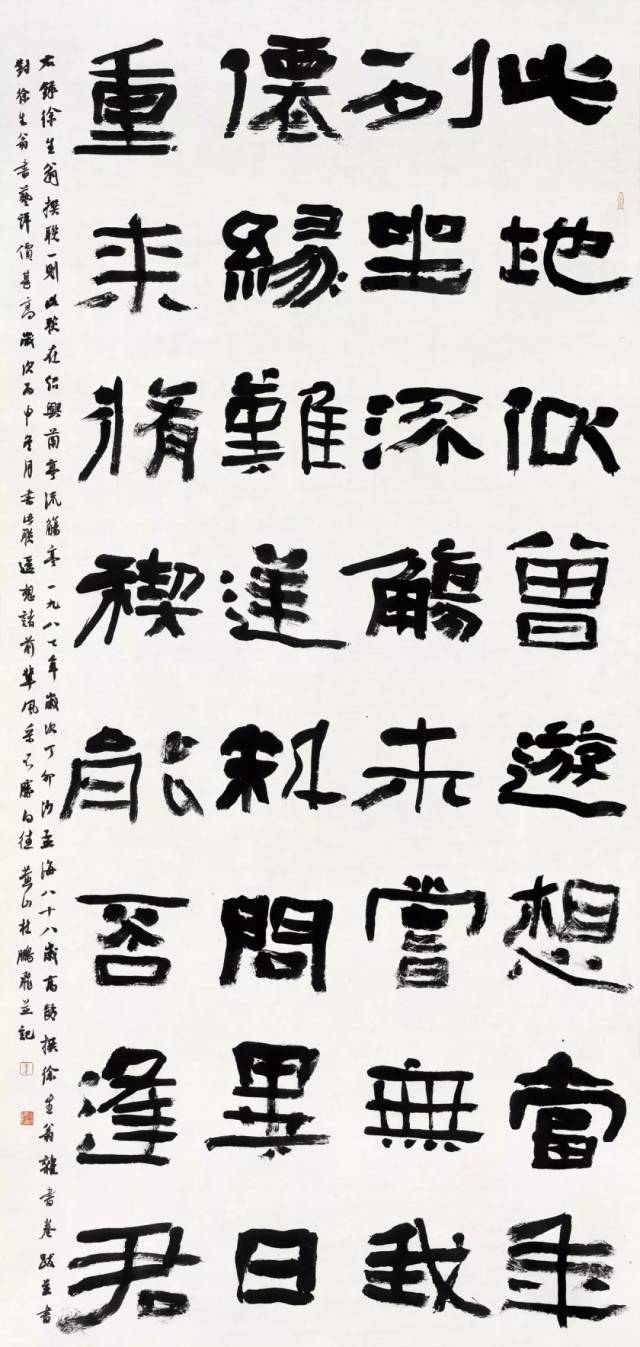 此地似曾遊想當年
列坐流觴未嘗無我
僊緣難逆料問異日
重來脩禊能否逢君
右錄徐生翁撰聯一則此聯在紹興蘭亭流觴亭一九八七年歲次丁卯沙孟海八十八歲高齡撰徐生翁雜書卷跋並書
對徐生翁書藝評價甚高歲次丙申月書此聯遥想諸前輩風采不勝向往黃山杜鵬飛並記